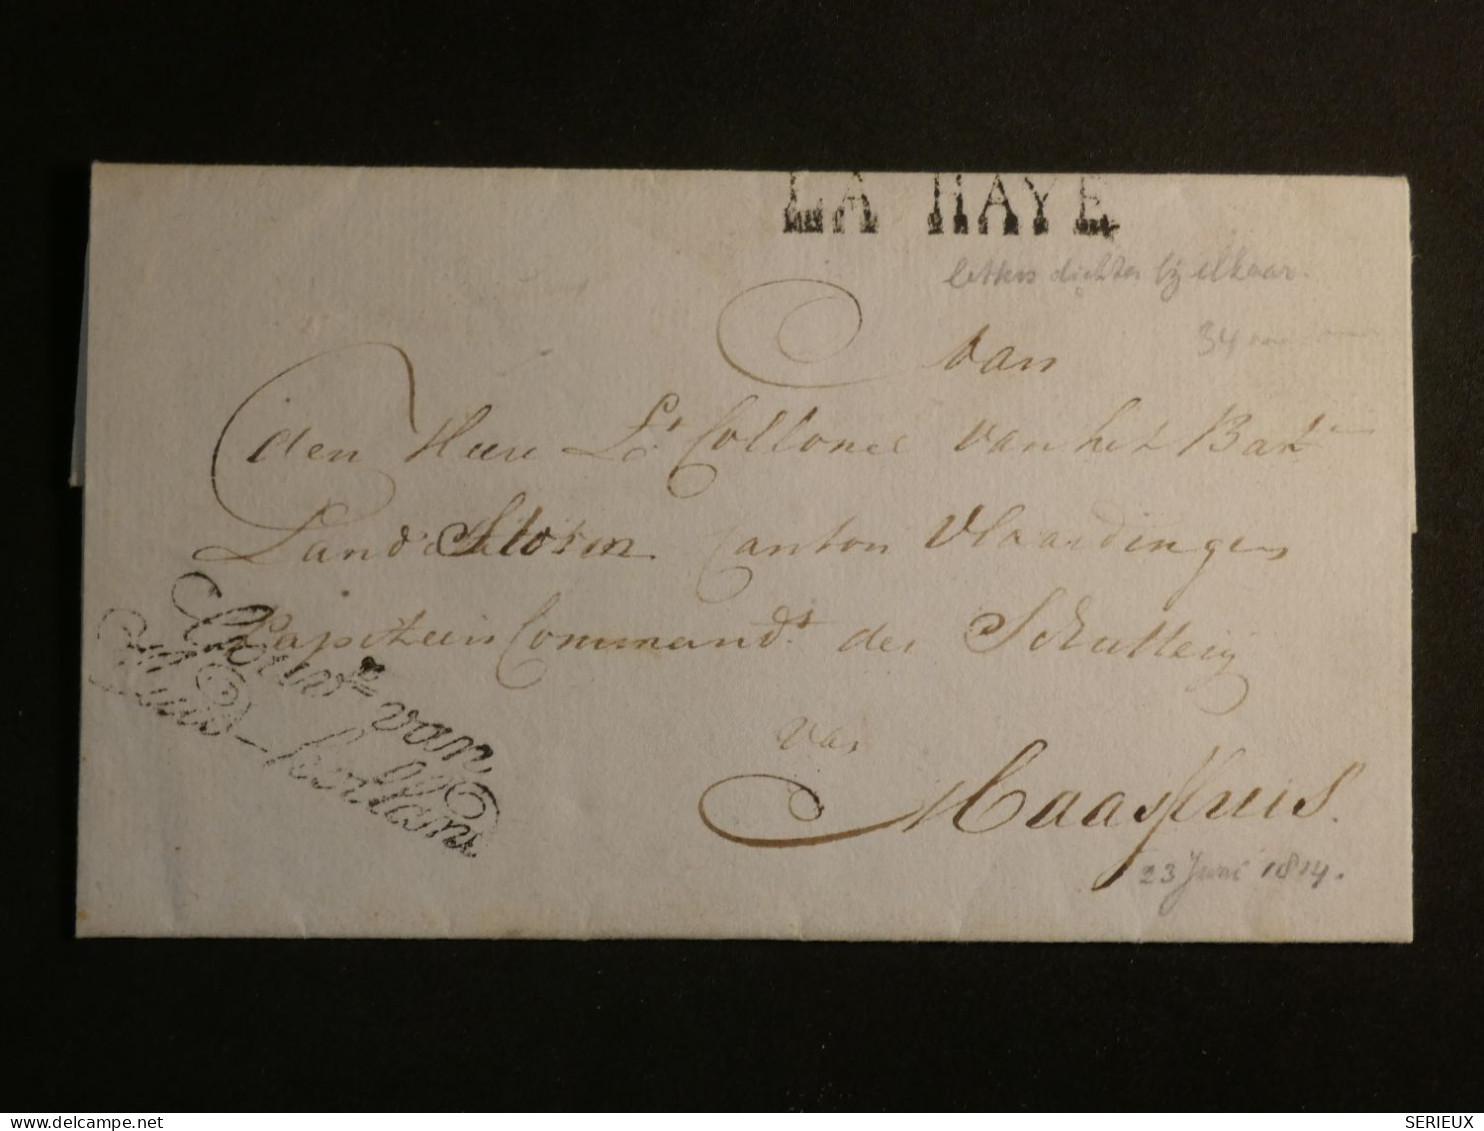 LA HAYE
letters dichter bij elkaar.
34
Van
den Heere Lt Collonel van het Bat
Land Storm Canton Vlaardingen
Capitein Command.t der Schutterij
van
Maassluis.
23 Juni 1814.
Gouvr van
Zuid-holland
SERIEUX